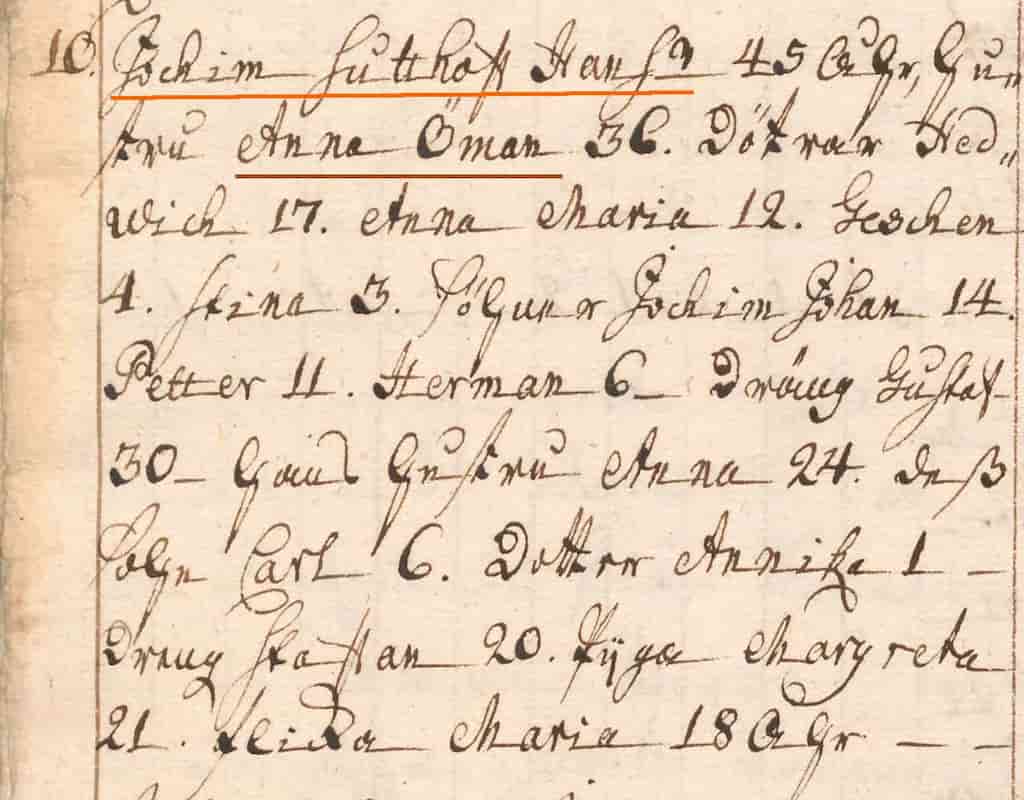 10. Jochim Sutthoff Hans Sn 45 åhr, Hu„
stru Anna Öman 36. Döttrar Hed„
wich 17. Anna Maria 12. Geschen
4. Stina 3. Söhner Jochim Johan 14.
Petter 11. Herman 6 Dräng Gustaf
30 Hans Hustru Anna 24. deß
Sohn Carl 6. Dotter Annika 1 –
Dreng Staffan 20. Pijga Margreta
21. flicka Maria 18 åhr – –